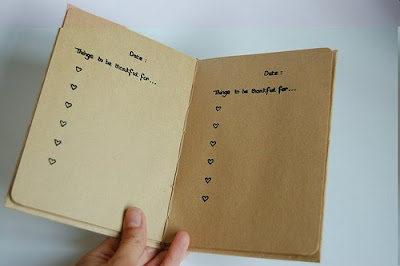 Date :
Things to be thankful for...
Date :
Things to be thankful for...